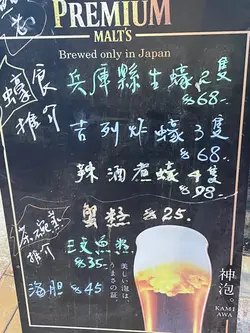 PREMIUM
MALT'S
Brewed only in Japan
蠔民推介
兵庫縣生蠔2隻
$68-
吉列炸蠔3隻
$68-
辣酒煮蠔4隻
$98-
茶碗蒸推介
蟹粒 $25.
三文魚粒
$35-
海胆 $45
美しい泡は、
うまさの証。
神泡。
KAMI
AWA